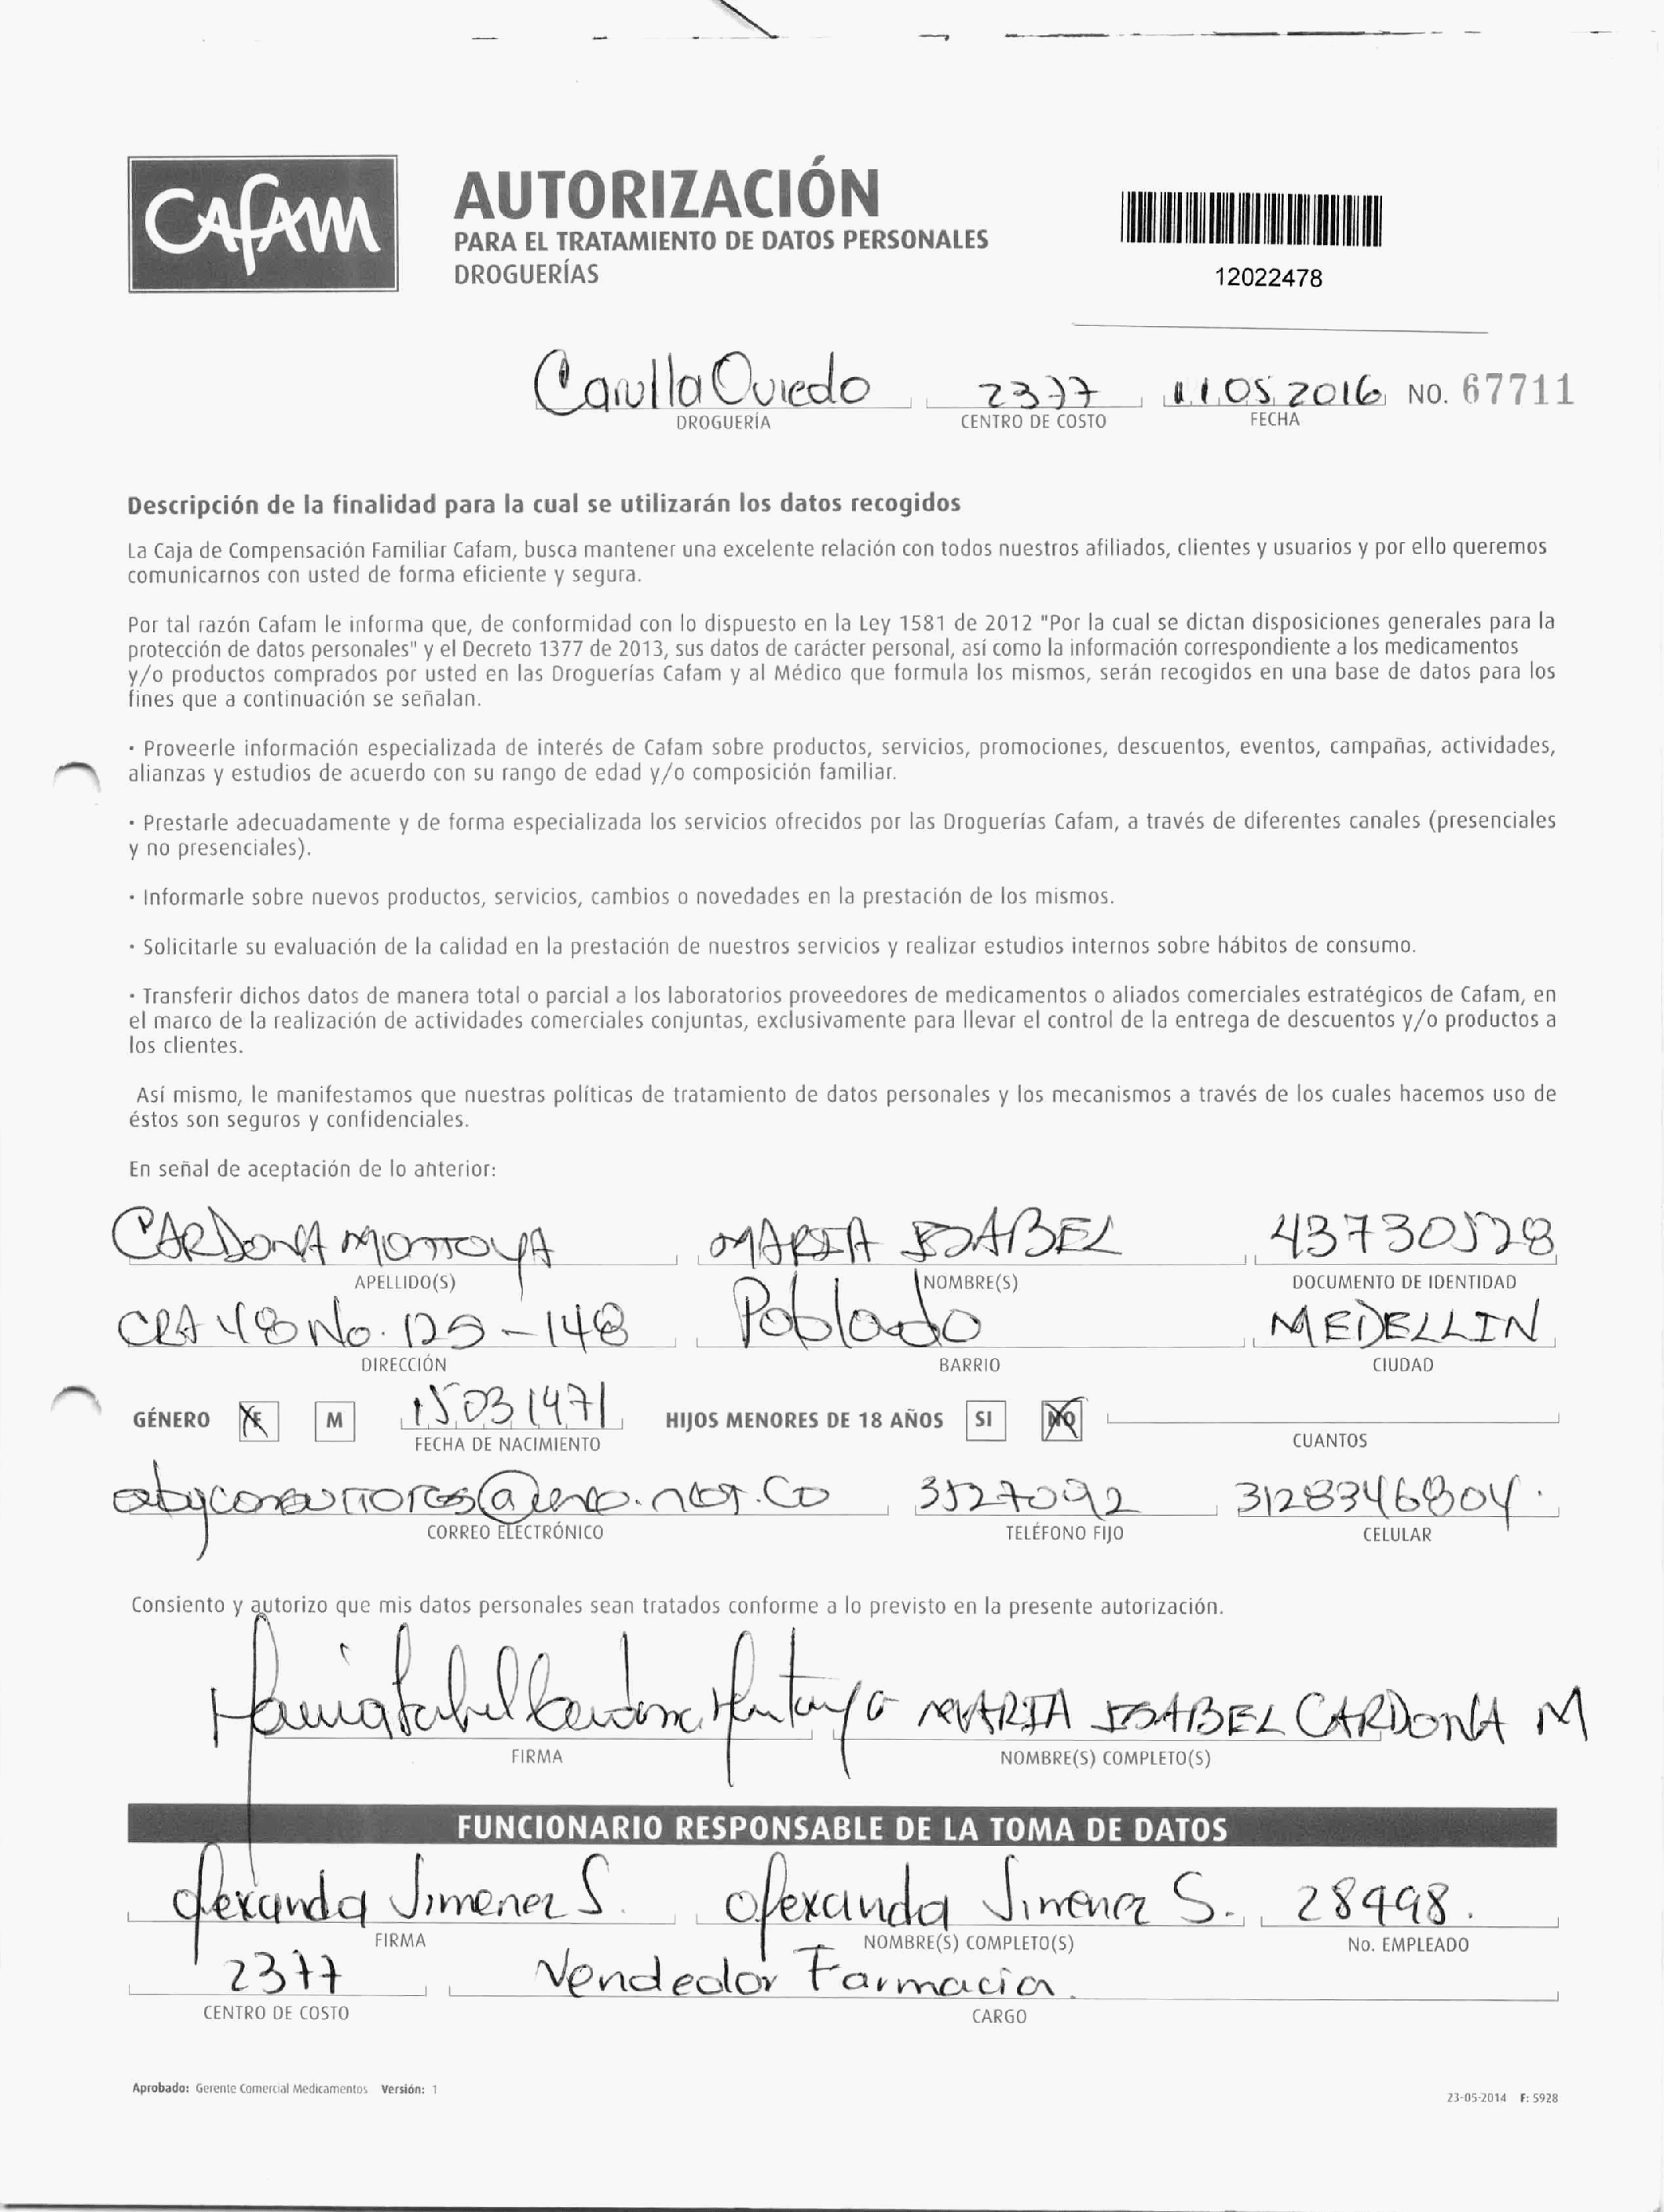 CAFAM
AUTORIZACIÓN
PARA EL TRATAMIENTO DE DATOS PERSONALES
DROGUERÍAS
12022478
Carulla Oviedo 2377 11 05 2016 NO. 67711
DROGUERÍA CENTRO DE COSTO FECHA
Descripción de la finalidad para la cual se utilizarán los datos recogidos
La Caja de Compensación Familiar Cafam, busca mantener una excelente relación con todos nuestros afiliados, clientes y usuarios y por ello queremos
comunicarnos con usted de forma eficiente y segura.
Por tal razón Cafam le informa que, de conformidad con lo dispuesto en la Ley 1581 de 2012 "Por la cual se dictan disposiciones generales para la
protección de datos personales" y el Decreto 1377 de 2013, sus datos de carácter personal, así como la información correspondiente a los medicamentos
y/o productos comprados por usted en las Droguerías Cafam y al Médico que formula los mismos, serán recogidos en una base de datos para los
fines que a continuación se señalan.
· Proveerle información especializada de interés de Cafam sobre productos, servicios, promociones, descuentos, eventos, campañas, actividades,
alianzas y estudios de acuerdo con su rango de edad y/o composición familiar.
· Prestarle adecuadamente y de forma especializada los servicios ofrecidos por las Droguerías Cafam, a través de diferentes canales (presenciales
y no presenciales).
· Informarle sobre nuevos productos, servicios, cambios o novedades en la prestación de los mismos.
· Solicitarle su evaluación de la calidad en la prestación de nuestros servicios y realizar estudios internos sobre hábitos de consumo.
· Transferir dichos datos de manera total o parcial a los laboratorios proveedores de medicamentos o aliados comerciales estratégicos de Cafam, en
el marco de la realización de actividades comerciales conjuntas, exclusivamente para llevar el control de la entrega de descuentos y/o productos a
los clientes.
Así mismo, le manifestamos que nuestras políticas de tratamiento de datos personales y los mecanismos a través de los cuales hacemos uso de
éstos son seguros y confidenciales.
En señal de aceptación de lo anterior:
CARDONA MONTOYA MARIA ISABEL 43730528
APELLIDO(S) NOMBRE(S) DOCUMENTO DE IDENTIDAD
CRA 48 No. 125-148 Poblado MEDELLIN
DIRECCIÓN BARRIO CIUDAD
GÉNERO F M 15 03 1971 HIJOS MENORES DE 18 AÑOS SI NO
FECHA DE NACIMIENTO CUANTOS
3527092 3128346804.
CORREO ELECTRÓNICO TELÉFONO FIJO CELULAR
Consiento y autorizo que mis datos personales sean tratados conforme a lo previsto en la presente autorización.
Maria Isabel Cardona Montoya MARIA ISABEL CARDONA M
FIRMA NOMBRE(S) COMPLETO(S)
FUNCIONARIO RESPONSABLE DE LA TOMA DE DATOS
Alexanda Jimenez S. Alexanda Jimenez S. 28498.
FIRMA NOMBRE(S) COMPLETO(S) No. EMPLEADO
2377 Vendedor Farmacia.
CENTRO DE COSTO CARGO
Aprobado: Gerente Comercial Medicamentos Versión: 1
23-05-2014 F: 5928